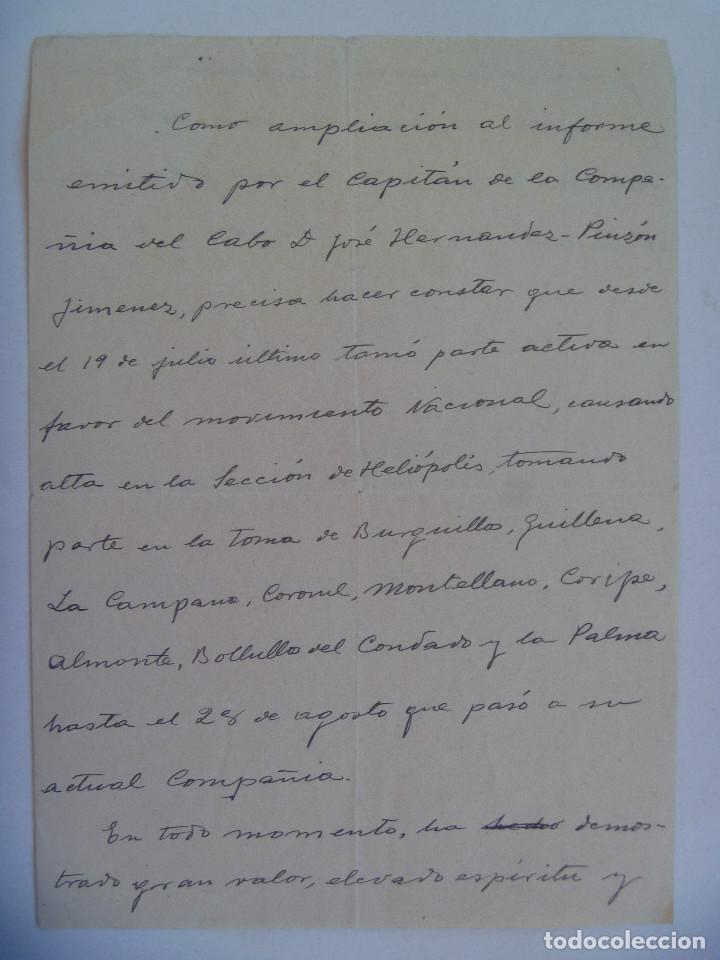 Como ampliación al informe
emitido por el Capitán de la Compa-
ñia del Cabo D José Hernandez-Pinzón
Jimenez, precisa hacer constar que desde
el 19 de julio último tomó parte activa en
favor del movimiento Nacional, causando
alta en la Sección de Heliópolis, tomando
parte en la toma de Burguillo, Guillena,
La Campana, Coronil, Montellano, Coripe,
Almonte, Bollullo del Condado y la Palma
hasta el 28 de agosto que pasó a su
actual Compañia.
En todo momento, ha demos-
trado gran valor, elevado espíritu y
todocoleccion.net